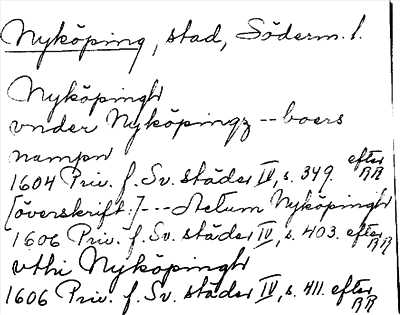 Nyköping, stad, Söderm. l.
Nyköpingh
vnder Nyköpingz -- boers
nampn
1604 Priv. f. Sv. städer IV, s. 349. efter RR
[överskrift:] --- Actum Nyköpingh
1606 Priv. f. Sv. städer IV, s. 403. efter RR
vthi Nyköpingh
1606 Priv. f. Sv. städer IV, s. 411. efter RR